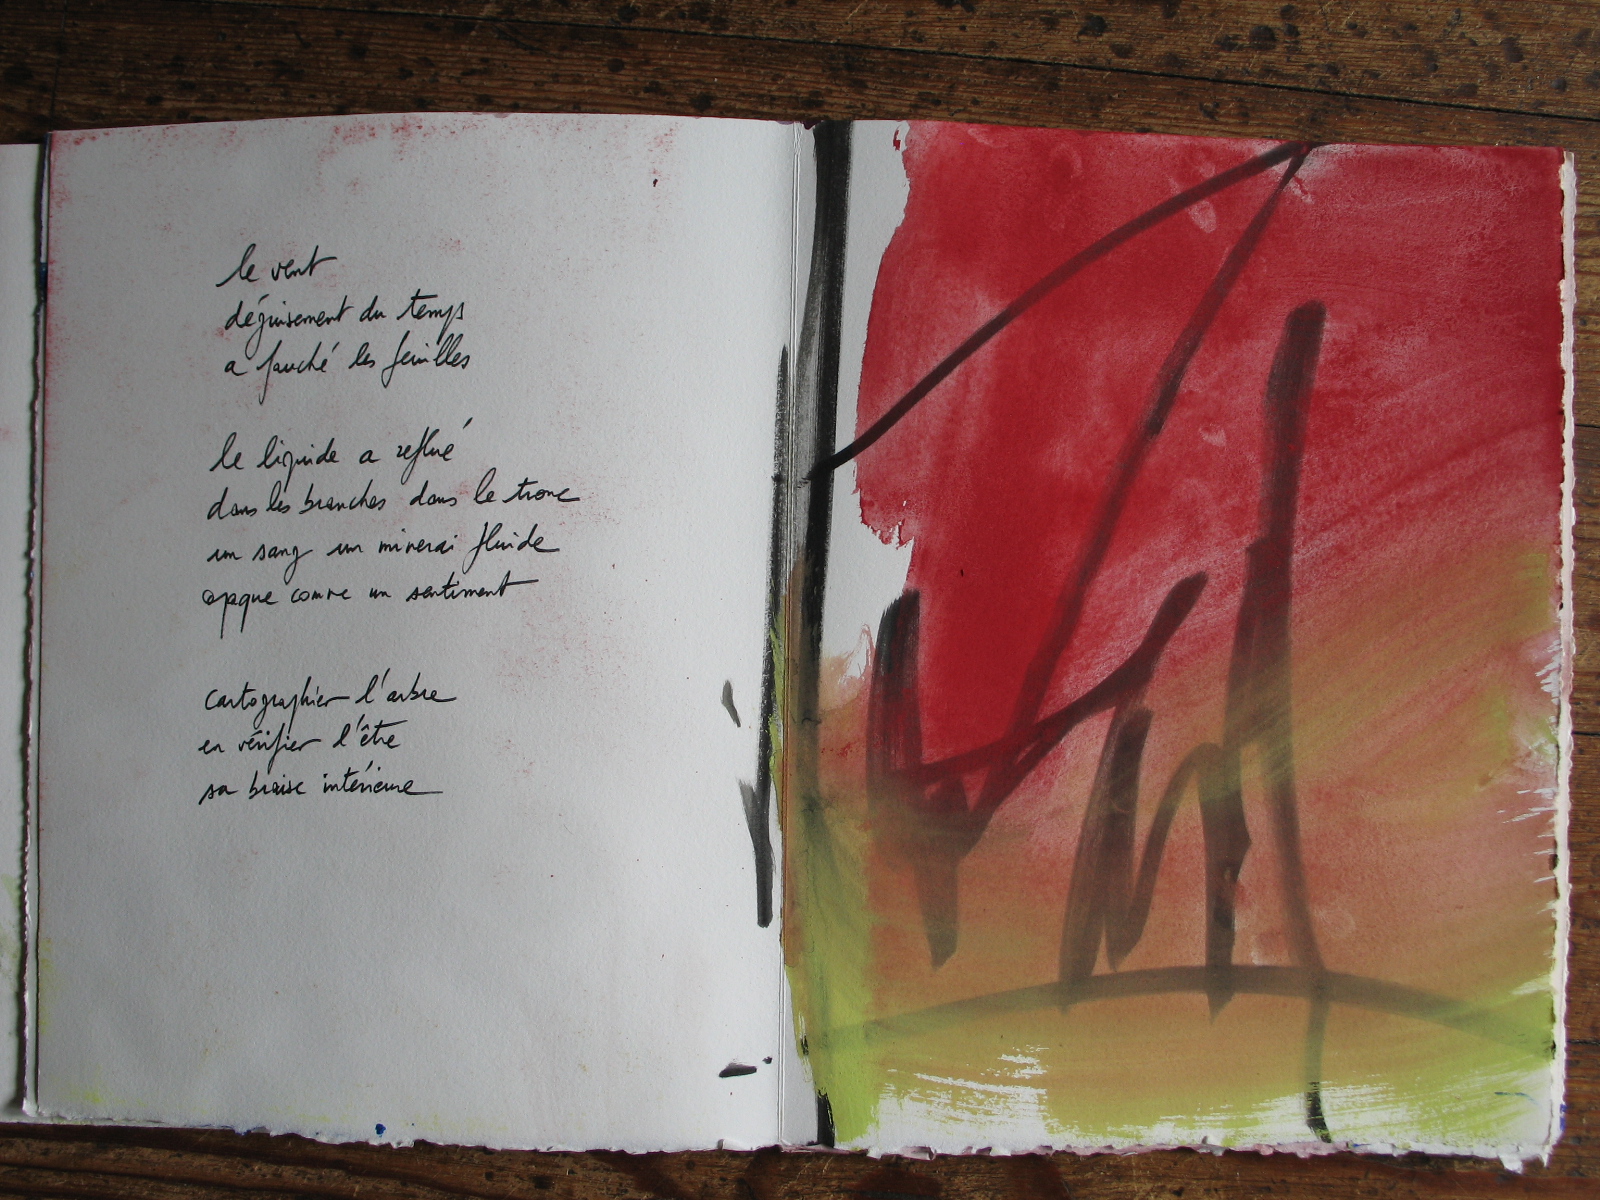 le vent
déguisement du temps
a fauché les feuilles
le liquide a reflué
dans les branches dans le tronc
un sang un minerai fluide
opaque comme un sentiment
cartographier l'arbre
en vérifier l'être
sa braise intérieure